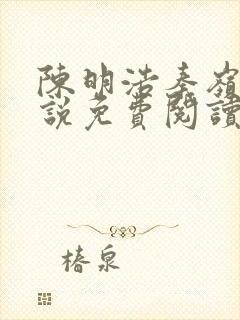 陳明浩秦嶺
說免費閱讀
椿泉